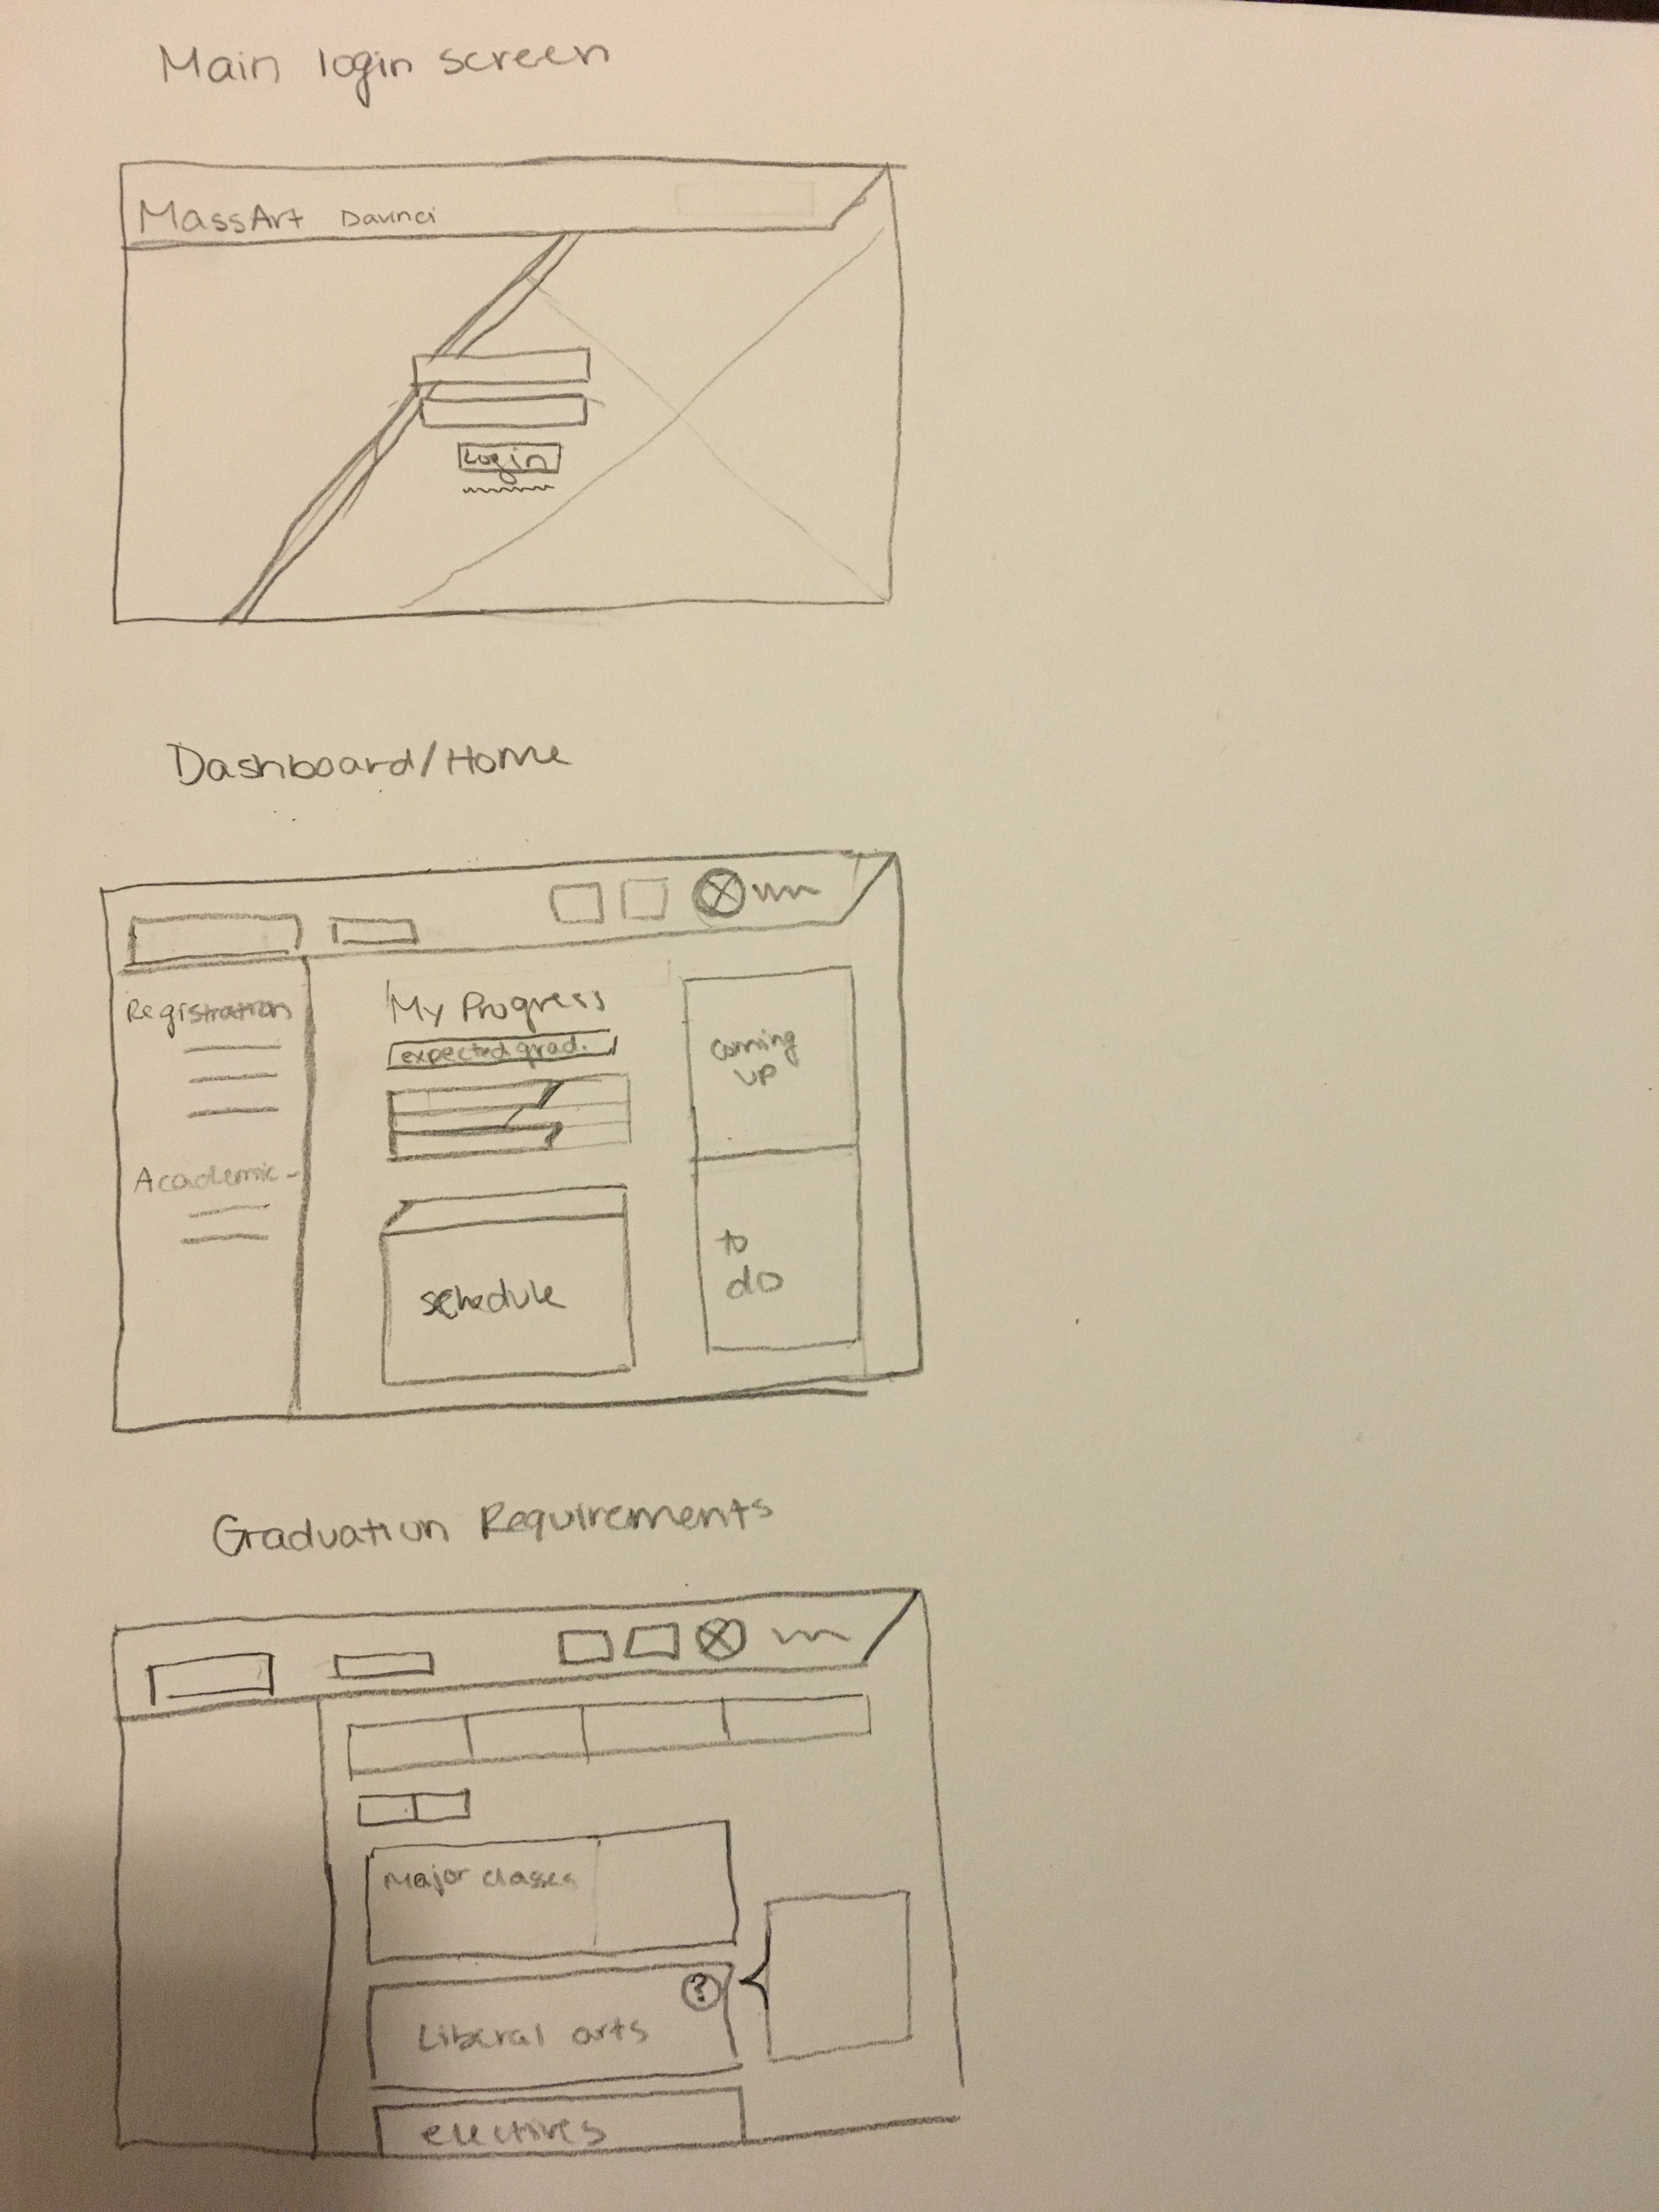 Main login screen
MassArt Davinci
Login
Dashboard/Home
Registration
My Progress
expected grad.
coming
up
Academic-
to
do
schedule
Graduation Requirements
Major classes
?
Liberal arts
electives